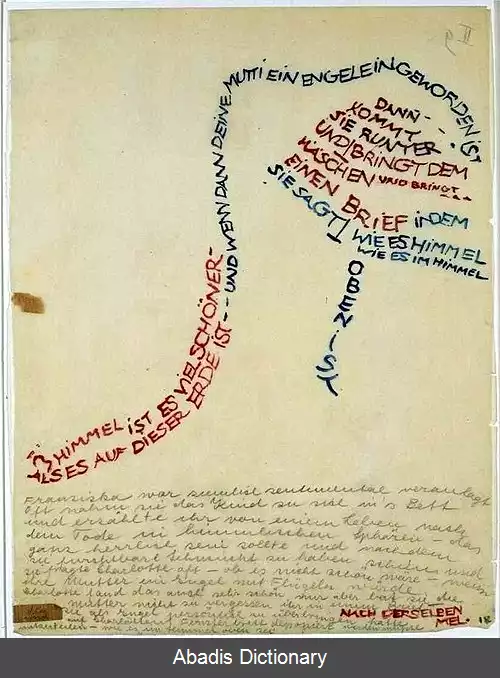 IM HIMMEL IST ES VIEL SCHÖNER-
ALS ES AUF DIESER ERDE IST --
UND WENN DANN DEINE MUTTI EIN ENGELEIN GEWORDEN IST
DANN --
KOMMT
SIE RUNTER
UND BRINGT DEM
HÄSCHEN UND BRINGT...
EINEN BRIEF INDEM
SIE SAGT WIE ES HIMMEL
WIE ES IM HIMMEL
OBEN IST
Franziska war ziemlich sentimental veranlagt
Oft nahm sie das Kind zu sich in's Bett
und erzählte ihr von einem Leben nach
dem Tode in himmlischen Sphären - das
ganz herrlich sein sollte und nach dem
sie furchtbare Sehnsucht zu haben schien und
so fragte Charlotte oft ob es nicht schön wäre - wenn
ihre Mutter ein Engel mit Flügeln würde.
Charlotte fand das auch sehr schön nur aber bat sie die
Mutter nicht zu vergessen ihr in einem
als Engel persönlich zu überbringen
NACH DERSELBEN
MEL.
Abadis Dictionary